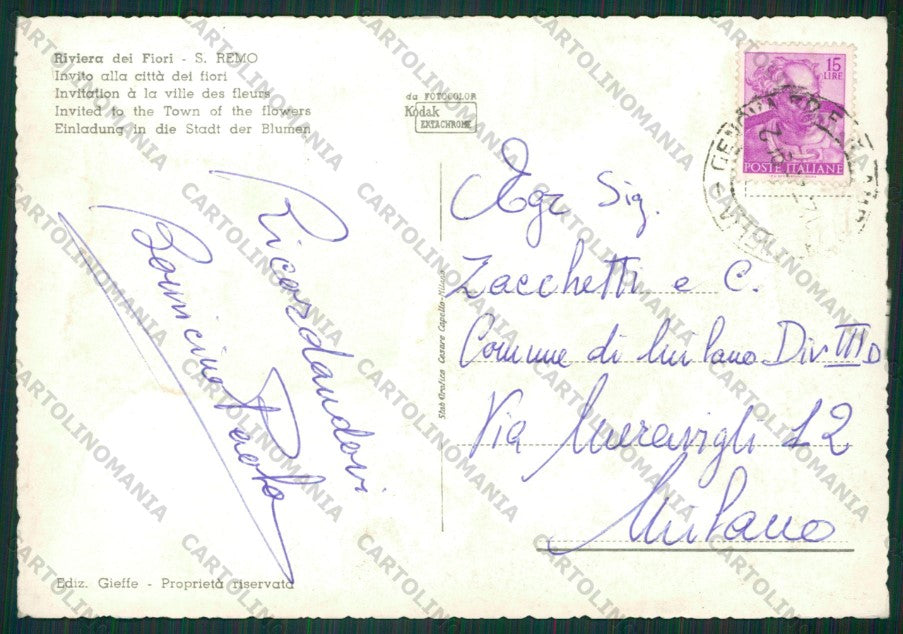 Riviera dei Fiori - S. REMO
Invito alla città dei fiori
Invitation à la ville des fleurs
Invited to the Town of the flowers
Einladung in die Stadt der Blumen
da FOTOCOLOR
Kodak
EKTACHROME
15
LIRE
POSTE ITALIANE
GENOVA
Ricordandovi
Paola
Egr Sig.
Zacchetti e C.
Comune di Milano Div III D
Via Meravigli 12
Milano
Stab Grafico Cesare Capello-Milano
Ediz. Gieffe - Proprietà riservata
CARTOLINOMANIA